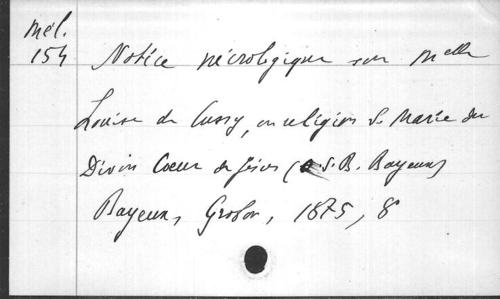 Mél.
154 Notice nécrologique sur Melle
Louise de Cussy, en religion S. Marie du
Divin Coeur de Jésus (O.S.B. Bayeux)
Bayeux, 1875, 8°